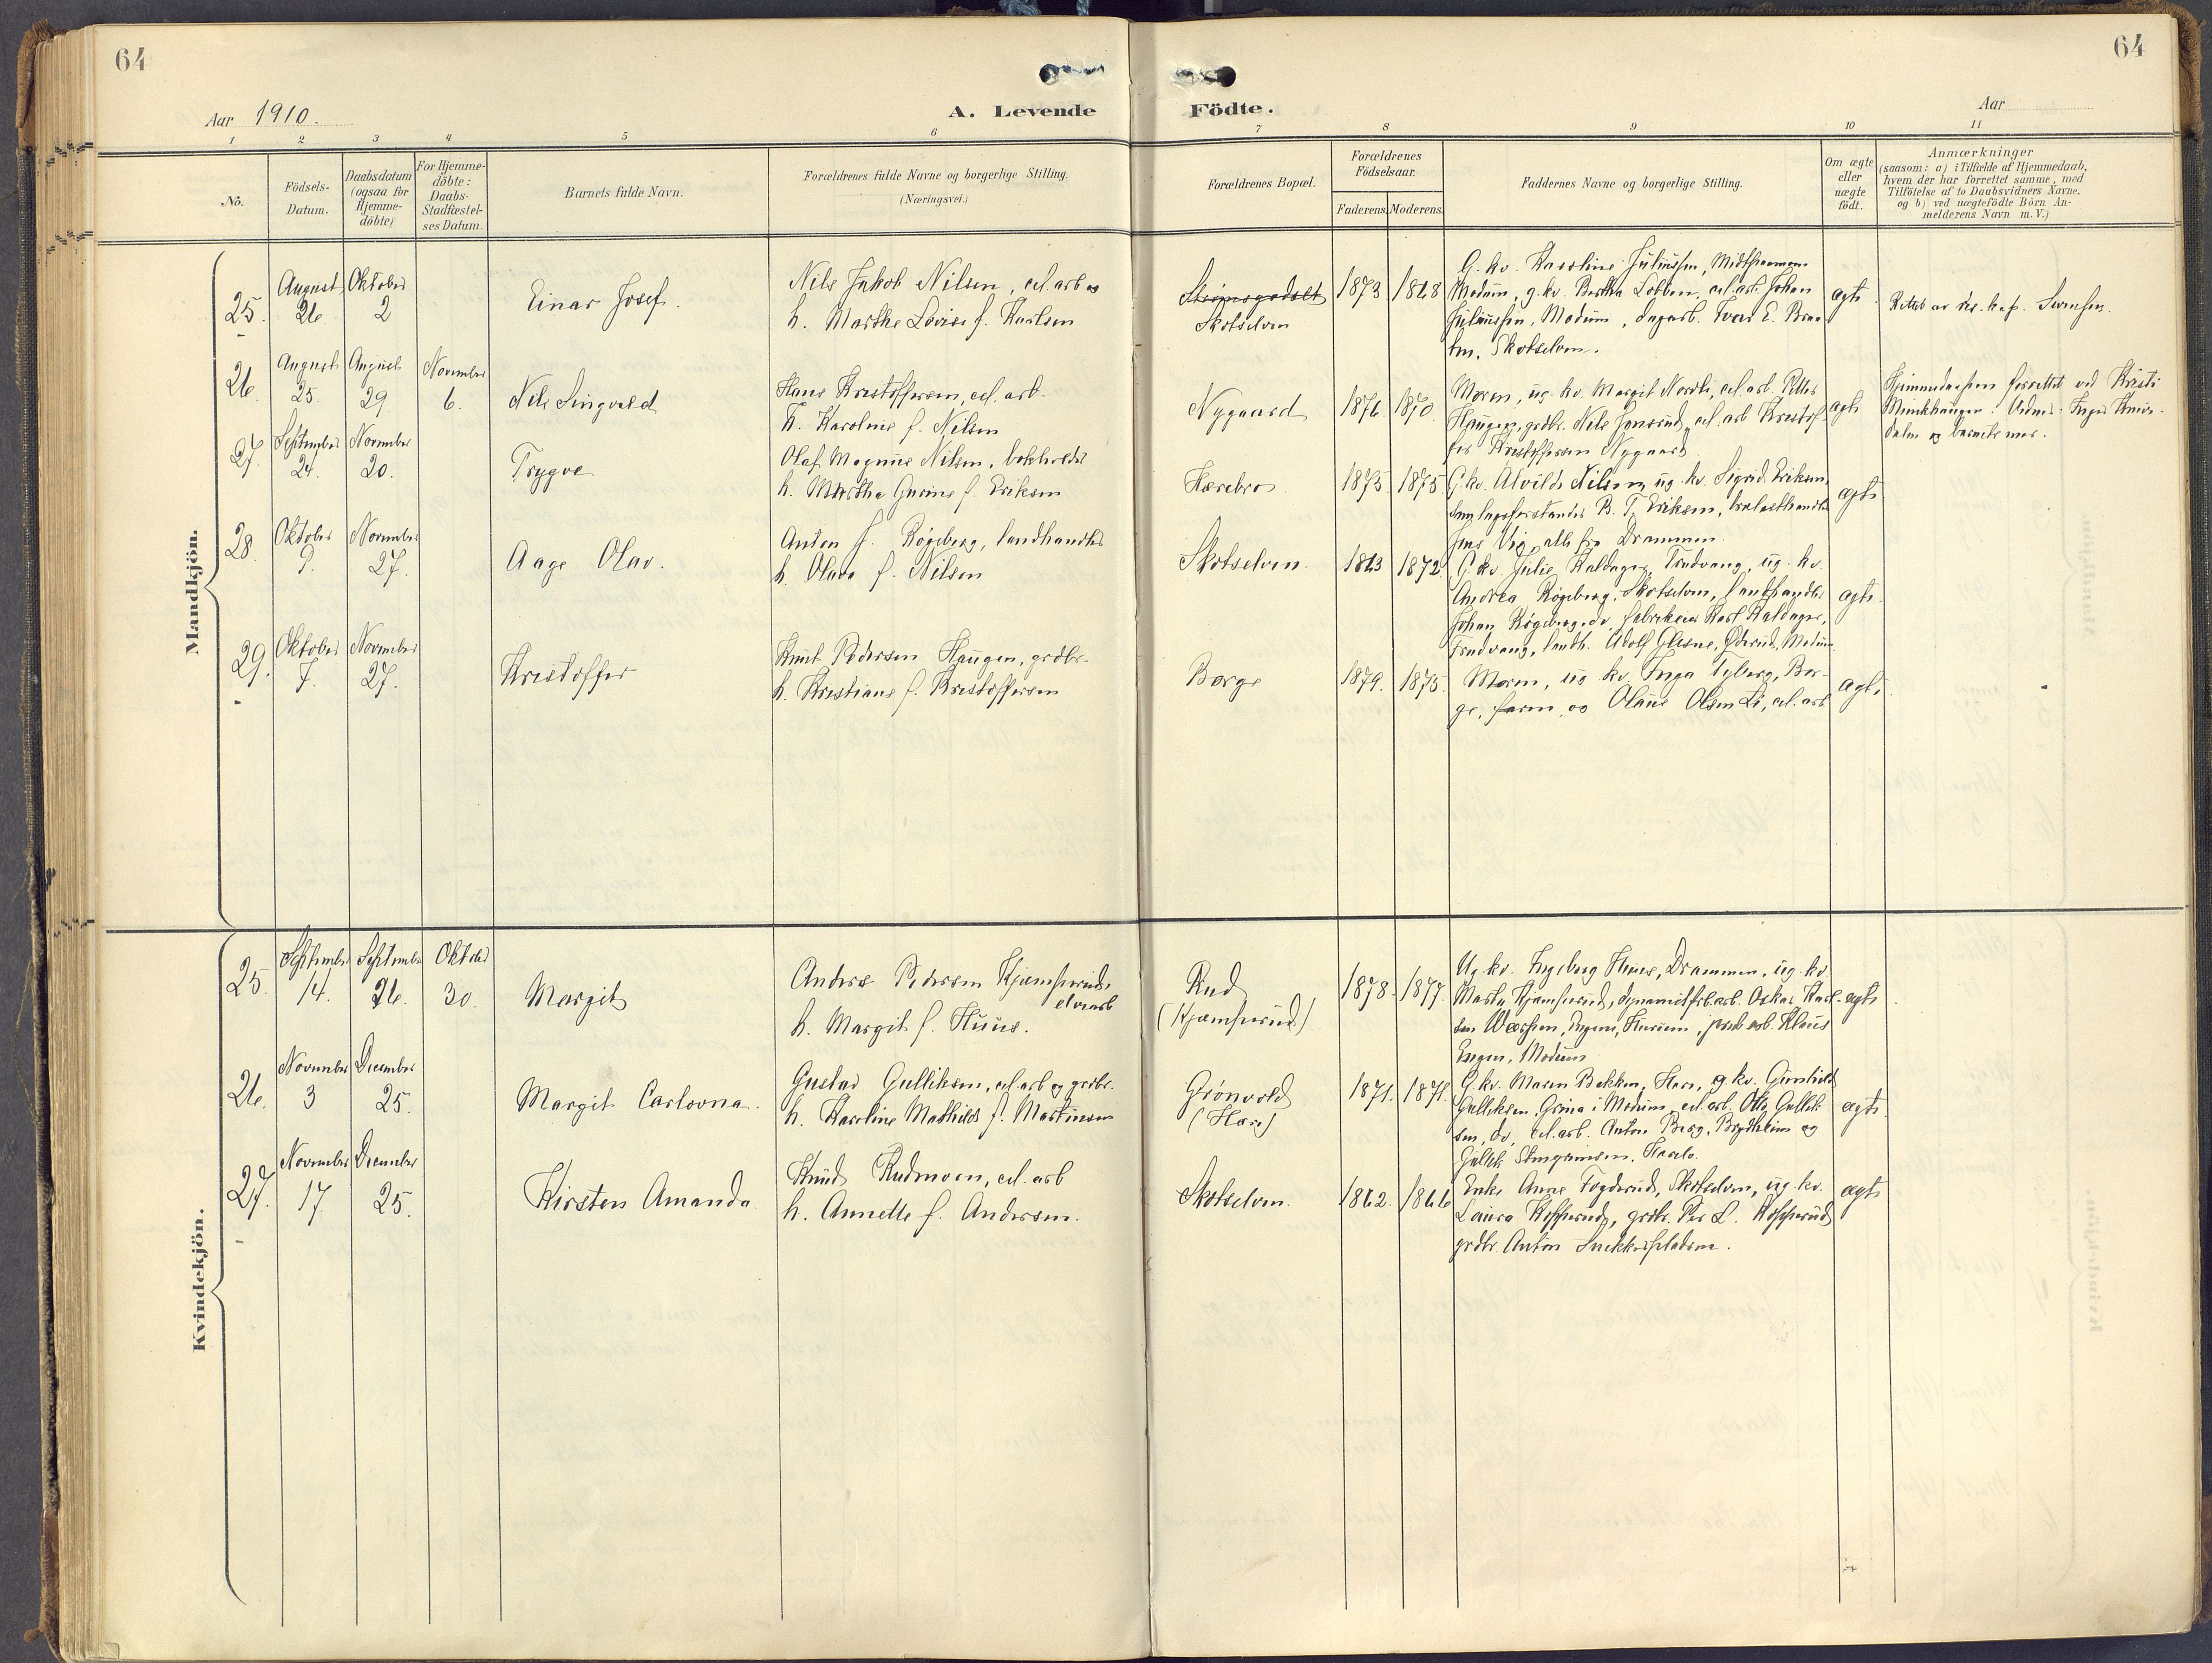 64
64
Aar 1910.
A. Levende Födte.
Aar
1 2 3 4 5 6 7 8 9 10 11
No.
Födsels-Datum.
Daabsdatum (ogsaa for Hjemme-döbte)
For Hjemme-döbte: Daabs-Stadfæstel-ses Datum.
Barnets fulde Navn.
Forældrenes fulde Navne og borgerlige Stilling.
(Næringsvei.)
Forældrenes Bopæl.
Forældrenes Födselsaar.
Faderens. Moderens.
Faddernes Navne og borgerlige Stilling.
Om ægte eller uægte födt.
Anmærkninger
(saasom: a) i Tilfælde af Hjemmedaab,
hvem der har forrettet samme, med
Tilföielse af to Daabsvidners Navne.
og b) ved uægtefödte Börn An-
melderens Navn m. V.)
Mandkjön.
25. August 26 Oktober 2
Einar Josef.
Nils Jakob Nilsen, cel. arb og
h. Marthe Lovise f. Karlsen
Strømsgodset
Skotselven
1873 1868
G. kv. Karoline Juliussen,
Modum, g. kv. Bertha Lobben, cel. arb. Johan
Juliussen, Modum, dagarb. Iver E. Braa-
ten, Skotselven.
ægte
26. August 25. August 29 November 6.
Nils Singvald
Hans Kristoffersen, cel. arb.
h. Karoline f. Nilsen
Nygaard
1876 1870
Moren, ug. kv. Margit Nordli, cel. arb. Petter
Haugen, grdbr. Nils Jonsrud, cel. arb Kristof-
fer Kristoffersen Nygaard.
ægte
Hjemmedaaben forrettet ved Kristi
Munkhaugen. Vidner: Inger
og barnets mor.
27. September 24. November 20.
Trygve
Olaf Magnus Nilsen, bokholder
h. Martha Gurine f. Eriksen
Hærebro
1875 1875
G. kv. Alvilde Nilsen, ug. kv. Sigrid Eriksen,
samlagsforstander B. T. Eriksen, trælasthandler
Jens Vig, alle fra Drammen.
ægte
28. Oktober 9. November 27.
Aage Olav.
Anton J. Røgeberg, landhandler
h. Olava f. Nilsen
Skotselven.
1863 1872
G. kv. Julie Kaldager, Trudvang, ug. kv.
Andrea Røgeberg, Skotselven, landhandler
Johan Røgeberg, do, fabrikeier Karl Kaldager,
Trudvang, landh. Adolf Glesne, Øderud, Modum.
ægte.
29. Oktober 7. November 27.
Kristoffer
Knut Pedersen Haugen, grdbr.
h. Kristiane f. Kristoffersen
Borge
1879. 1875.
Moren, ug kv. Inga Tyberg, Bor-
ge, faren og Olaus Olsen Li, cel. arb
ægte.
Kvindekjön.
25. September 14. September 26. Oktober 30.
Margit
Anders Pedersen Kjemperud,
elvearb
h. Margit f. Huus.
Rud
(Kjemperud)
1878. 1877.
Ug. kv. Ingeborg Huus, Drammen, ug. kv.
Marta Kjemperud, dynamitfrb.arb. Oskar Karl-
sen Engene, Hurum, Klaus
Engen, Modum
ægte
26. November 3 December 25.
Margit Carlovna.
Gustav Gulliksen, cel. arb og grdbr.
h. Karoline Mathilde f. Martinsen
Grønvold
(Hære)
1871. 1871.
G. kv. Maren Bekken, Hære, g. kv. Gunhild
Gulliksen, Grina i Modum, cel. arb. Otto Gullik-
sen, do, cel. arb. Anton Berg, og
Gullik Stengrimsen,
ægte.
27. November 17. December 25.
Kirsten Amanda.
Knud Rudmoen, cel. arb
h. Annette f. Andersen.
Skotselven.
1862. 1866
Enke Anne Fogderud, Skotselven, ug. kv.
Laura Kopperud, grdbr. Per L. Kopperud
grdbr. Anton Snekkerpladsen.
ægte